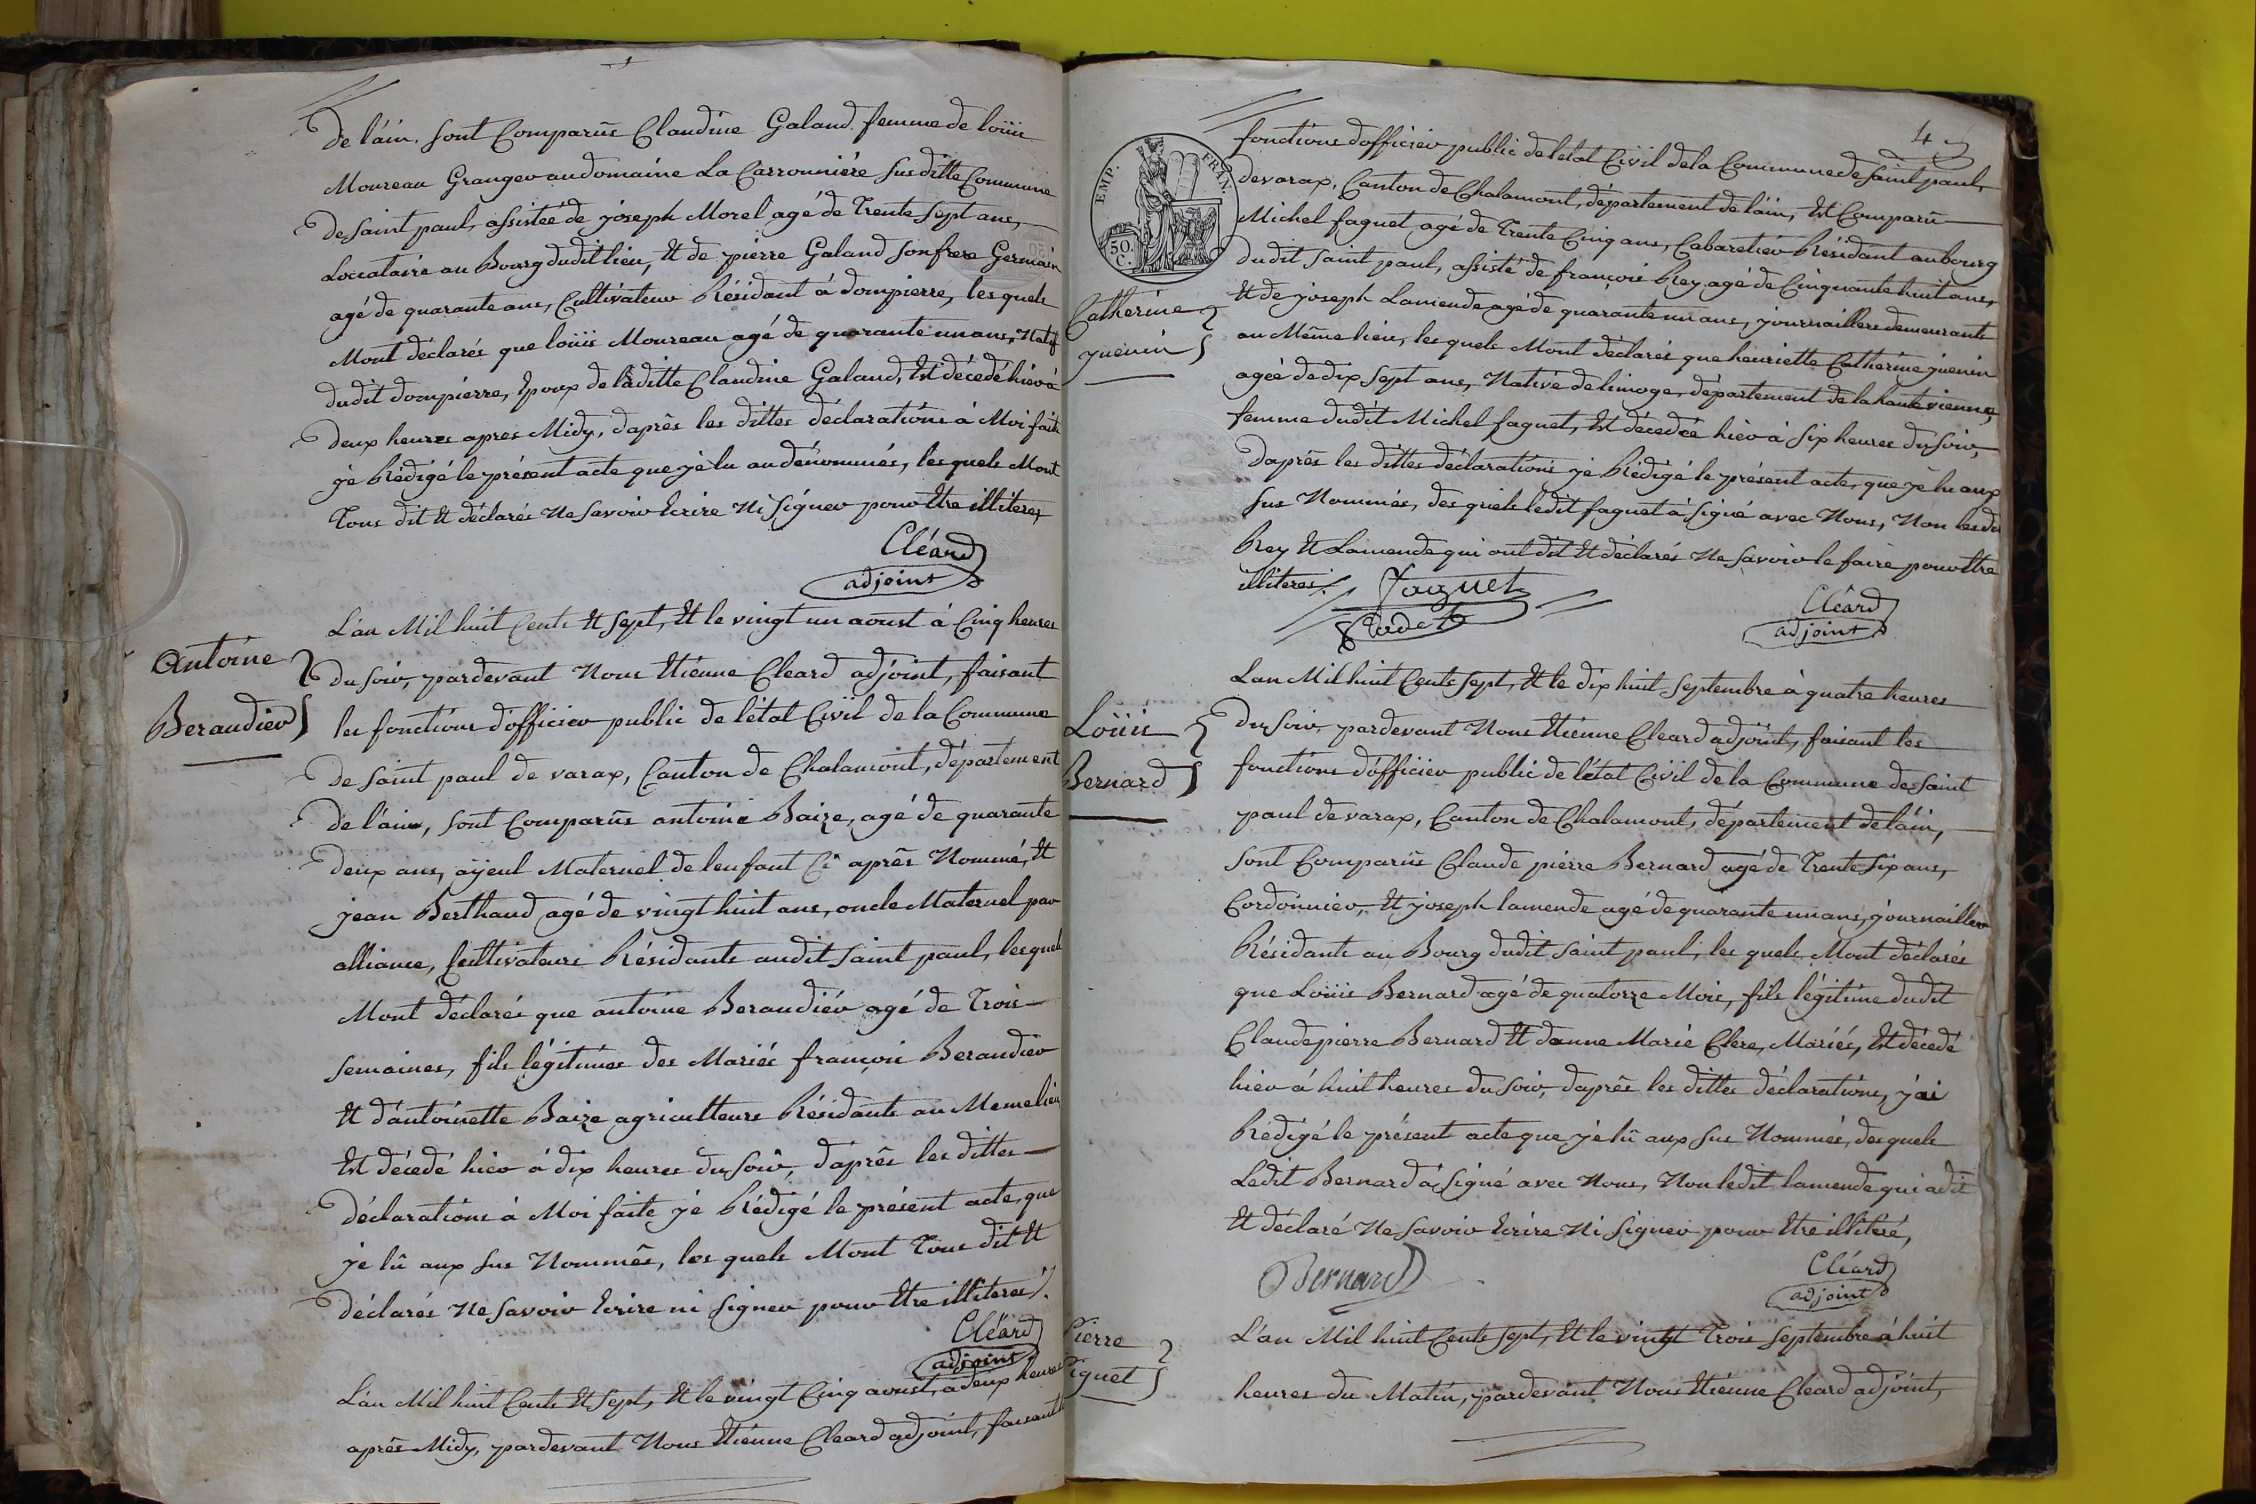 de lain. sont Comparûs Claudine Galand femme de loüis
Moureau Granger au domaine La Carronniére Susditte Commune
de Saint paul, assistée de joseph Morel agé de Trente Sept ans,
Loccataire au Bourg dudit lieu, Et de pierre Galand son frere Germain
agé de quarante ans, Cultivateur Résidant à dompierre, les quels
Mont déclarés que loüis Moureau agé de quarante un ans, Natif
dudit dompierre, Epoux de la ditte Claudine Galand, Est décedé hiér à
deux heures apres Midy, daprês les dittes déclarations à Moi faite
jé Rédigé le présent acte que jè lu au dénommés, lesquels Mont
Tous dit Et déclarés Ne Savoir Ecrire Ni Signer pour Etre illiteres
Cléard
adjoint
Antoine
Beraudier
L'an Mil huit Cents Et Sept, Et le vingt un aoust à Cinq heures
du Soir, pardevant Nous Etiénne Cleard adjoint, faisant
les fonctions d'officier public de l'état Civil de la Commune
de Saint paul de varax, Canton de Chalamont, département
de l'ain, sont Comparûs antoine Baize, agé de quarante
deux ans, ayeul Maternel de lenfant Ci aprês Nommé, Et
jean Berthaud agé de vingt huit ans, oncle Maternel par
alliance, Cultivateurs Résidants audit Saint paul, lesquels
Mont déclarés que antoine Beraudiér agé de Trois
semaines, fils légitimes des Mariés françois Beraudier
Et d'antoinette Baize agriculteurs Résidants au Meme lieu
Est décedé hier à dix heures du Soir, d'aprês les dittes
déclarations à Moi faite jé Rédigé le présent acte, que
jé lû aux Sus Nommês, les quels Mont Tous dit Et
déclarés Ne Savoir Ecrire ni Signer pour Etre illiteres.
Cléard
adjoint
L'an Mil huit Cents Et Sept, Et le vingt Cinq aoust, a deux heures
aprês Midy, pardevant Nous Etiénne Cleard adjoint, faisant
4
EMP. FRAN.
50. C.
fonctions dofficier public de létat Civil de la Commune de Saint paul,
de varax, Canton de Chalamont, département de lain, Est Comparû
Michel faguet agé de Trente Cinq ans, Cabaretiér Résidant au bourg
dudit Saint paul, assisté de françois Rey agé de Cinquante huit ans,
Catherine
guenin
Et de joseph Lamende agé de quarante un ans, journaillers demeurants
au Même lieu, les quels Mont déclarés que henriette Catherine guenin
agéé de dix Sept ans, Native de limoge, département de la haute vienne,
femme dudit Michel faguet, Est décedéé hiér à Six heures du Soir,
Daprês les dittes déclarations jé Rédigé le présent acte, que jè lu aux
Sus Nommés, des quels ledit faguet à Signé avec Nous, Non lesdits
Rey Et Lamende qui ont dit Et déclarés Ne Savoir le faire pour Etre
illiteres.
Faguet
Cléard
adjoint
Loüis
Bernard
Lan Mil huit Cents Sept, Et le dix huit Septembre à quatre heures
du Soir, pardevant Nous Etiénne Cleard adjoint, faisant les
fonctions d'officier public de l'état Civil de la Commune de Saint
paul de varax, Canton de Chalamont, département de lain,
Sont Comparûs Claude pierre Bernard agé de Trente Six ans,
Cordonnier, Et joseph lamende agé de quarante un ans, journailler
Résidants au Bourg dudit Saint paul, les quels Mont déclarés
que Loüis Bernard agé de quatorze Mois, fils légitime dudit
Claude pierre Bernard Et danne Marie Clere, Mariés, Est décedé
hier à huit heures du Soir, daprês les dittes déclarations, jai
Rédigé le présent acte que jè lû aux Sus Nommés, desquels
Ledit Bernard à Signé avec Nous, Non ledit lamende qui a dit
Et déclaré Ne Savoir Ecrire Ni Signer pour Etre illiteré,
Bernard
Cléard
adjoint
Pierre
Piguet
L'an Mil huit Cents Sept, Et le vingt Trois Septembre à huit
heures du Matin, pardevant Nous Etiénne Cleard adjoint,